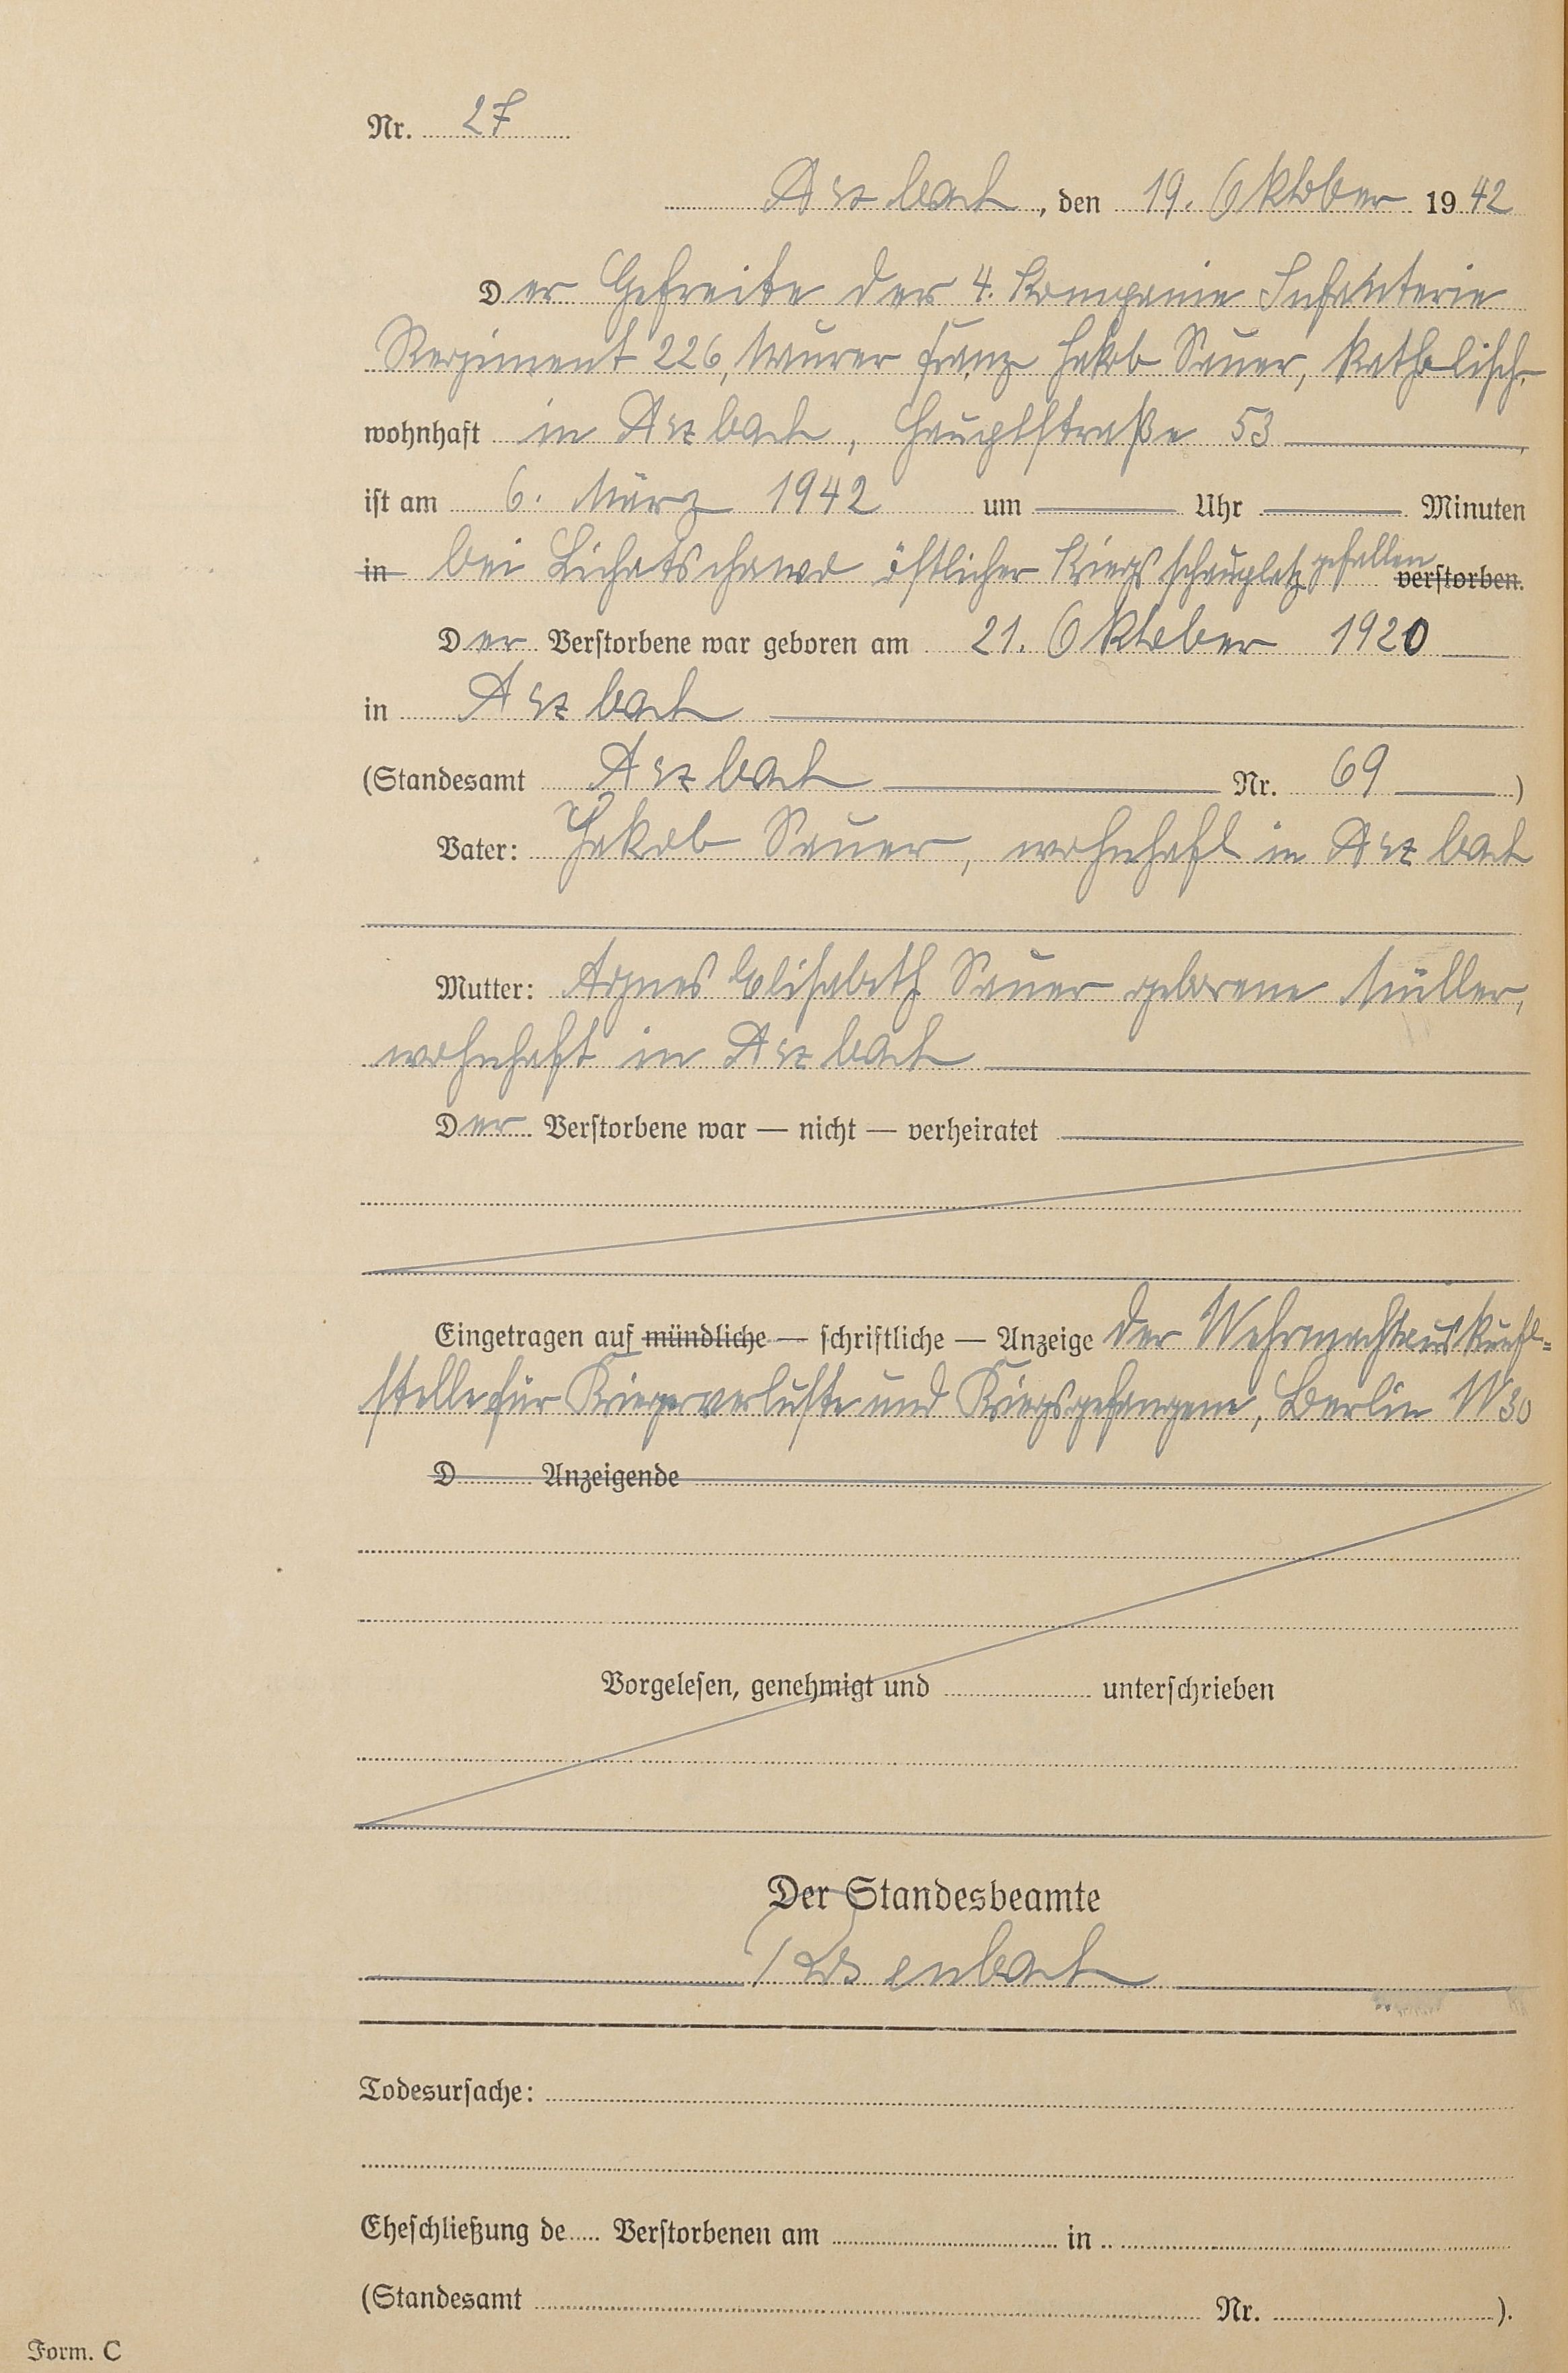 Nr. 27
Arzbach, den 19. Oktober 1942
Der Gefreite der 4. Kompanie Infanterie
Regiment 226, Maurer Franz Jakob Sauer, katholisch,
wohnhaft in Arzbach, Hauptstraße 53
ist am 6. März 1942 um Uhr Minuten
in bei Lichatschowo östlicher Kriegsschauplatz gefallen verstorben.
Der Verstorbene war geboren am 21. Oktober 1920
in Arzbach
(Standesamt Arzbach Nr. 69 )
Vater: Jakob Sauer, wohnhaft in Arzbach
Mutter: Agnes Elisabeth Sauer geborene Müller,
wohnhaft in Arzbach
Der Verstorbene war — nicht — verheiratet
Eingetragen auf mündliche — schriftliche — Anzeige der Wehrmachtauskunft-
stelle für Kriegerverluste und Kriegsgefangene, Berlin W 30
D Anzeigende
Vorgelesen, genehmigt und unterschrieben
Der Standesbeamte
Todesursache:
Eheschließung de Verstorbenen am in
(Standesamt Nr. ).
Form. C